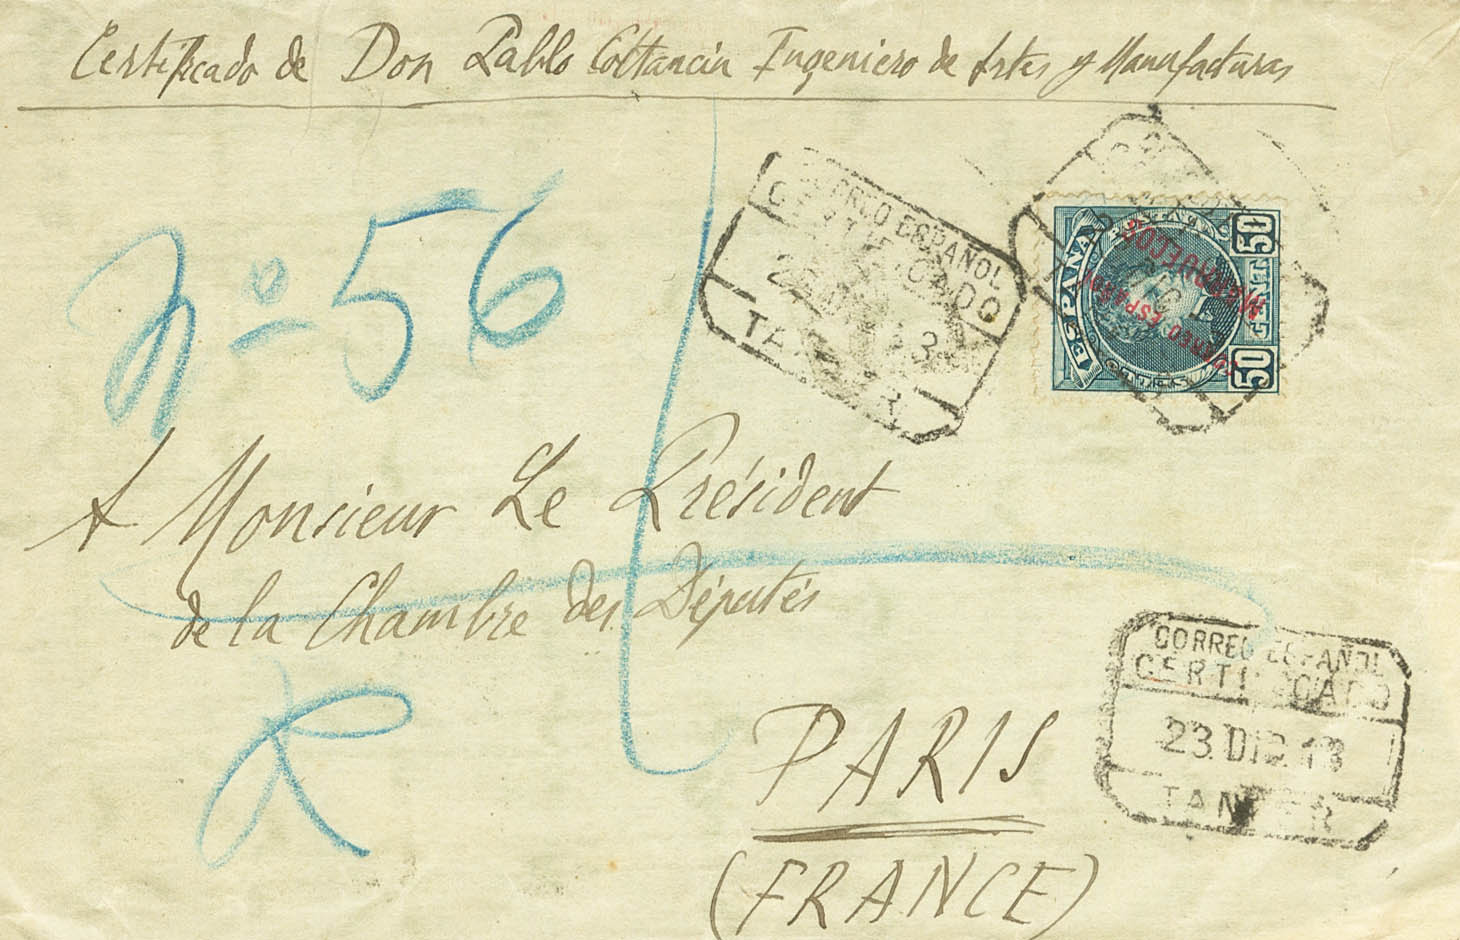 Certificado de Don Pablo Coltancin Ingeniero de Artes y Manufacturas
Nº 56
CORREO ESPAÑOL
CERTIFICADO
TANGER
ESPAÑA
50
CENTS
50
CORREO ESPAÑOL
MARRUECOS
A Monsieur Le Président
de la Chambre des Députés
R
PARIS
(FRANCE)
CORREO ESPAÑOL
CERTIFICADO
23 DIC 13
TANGER